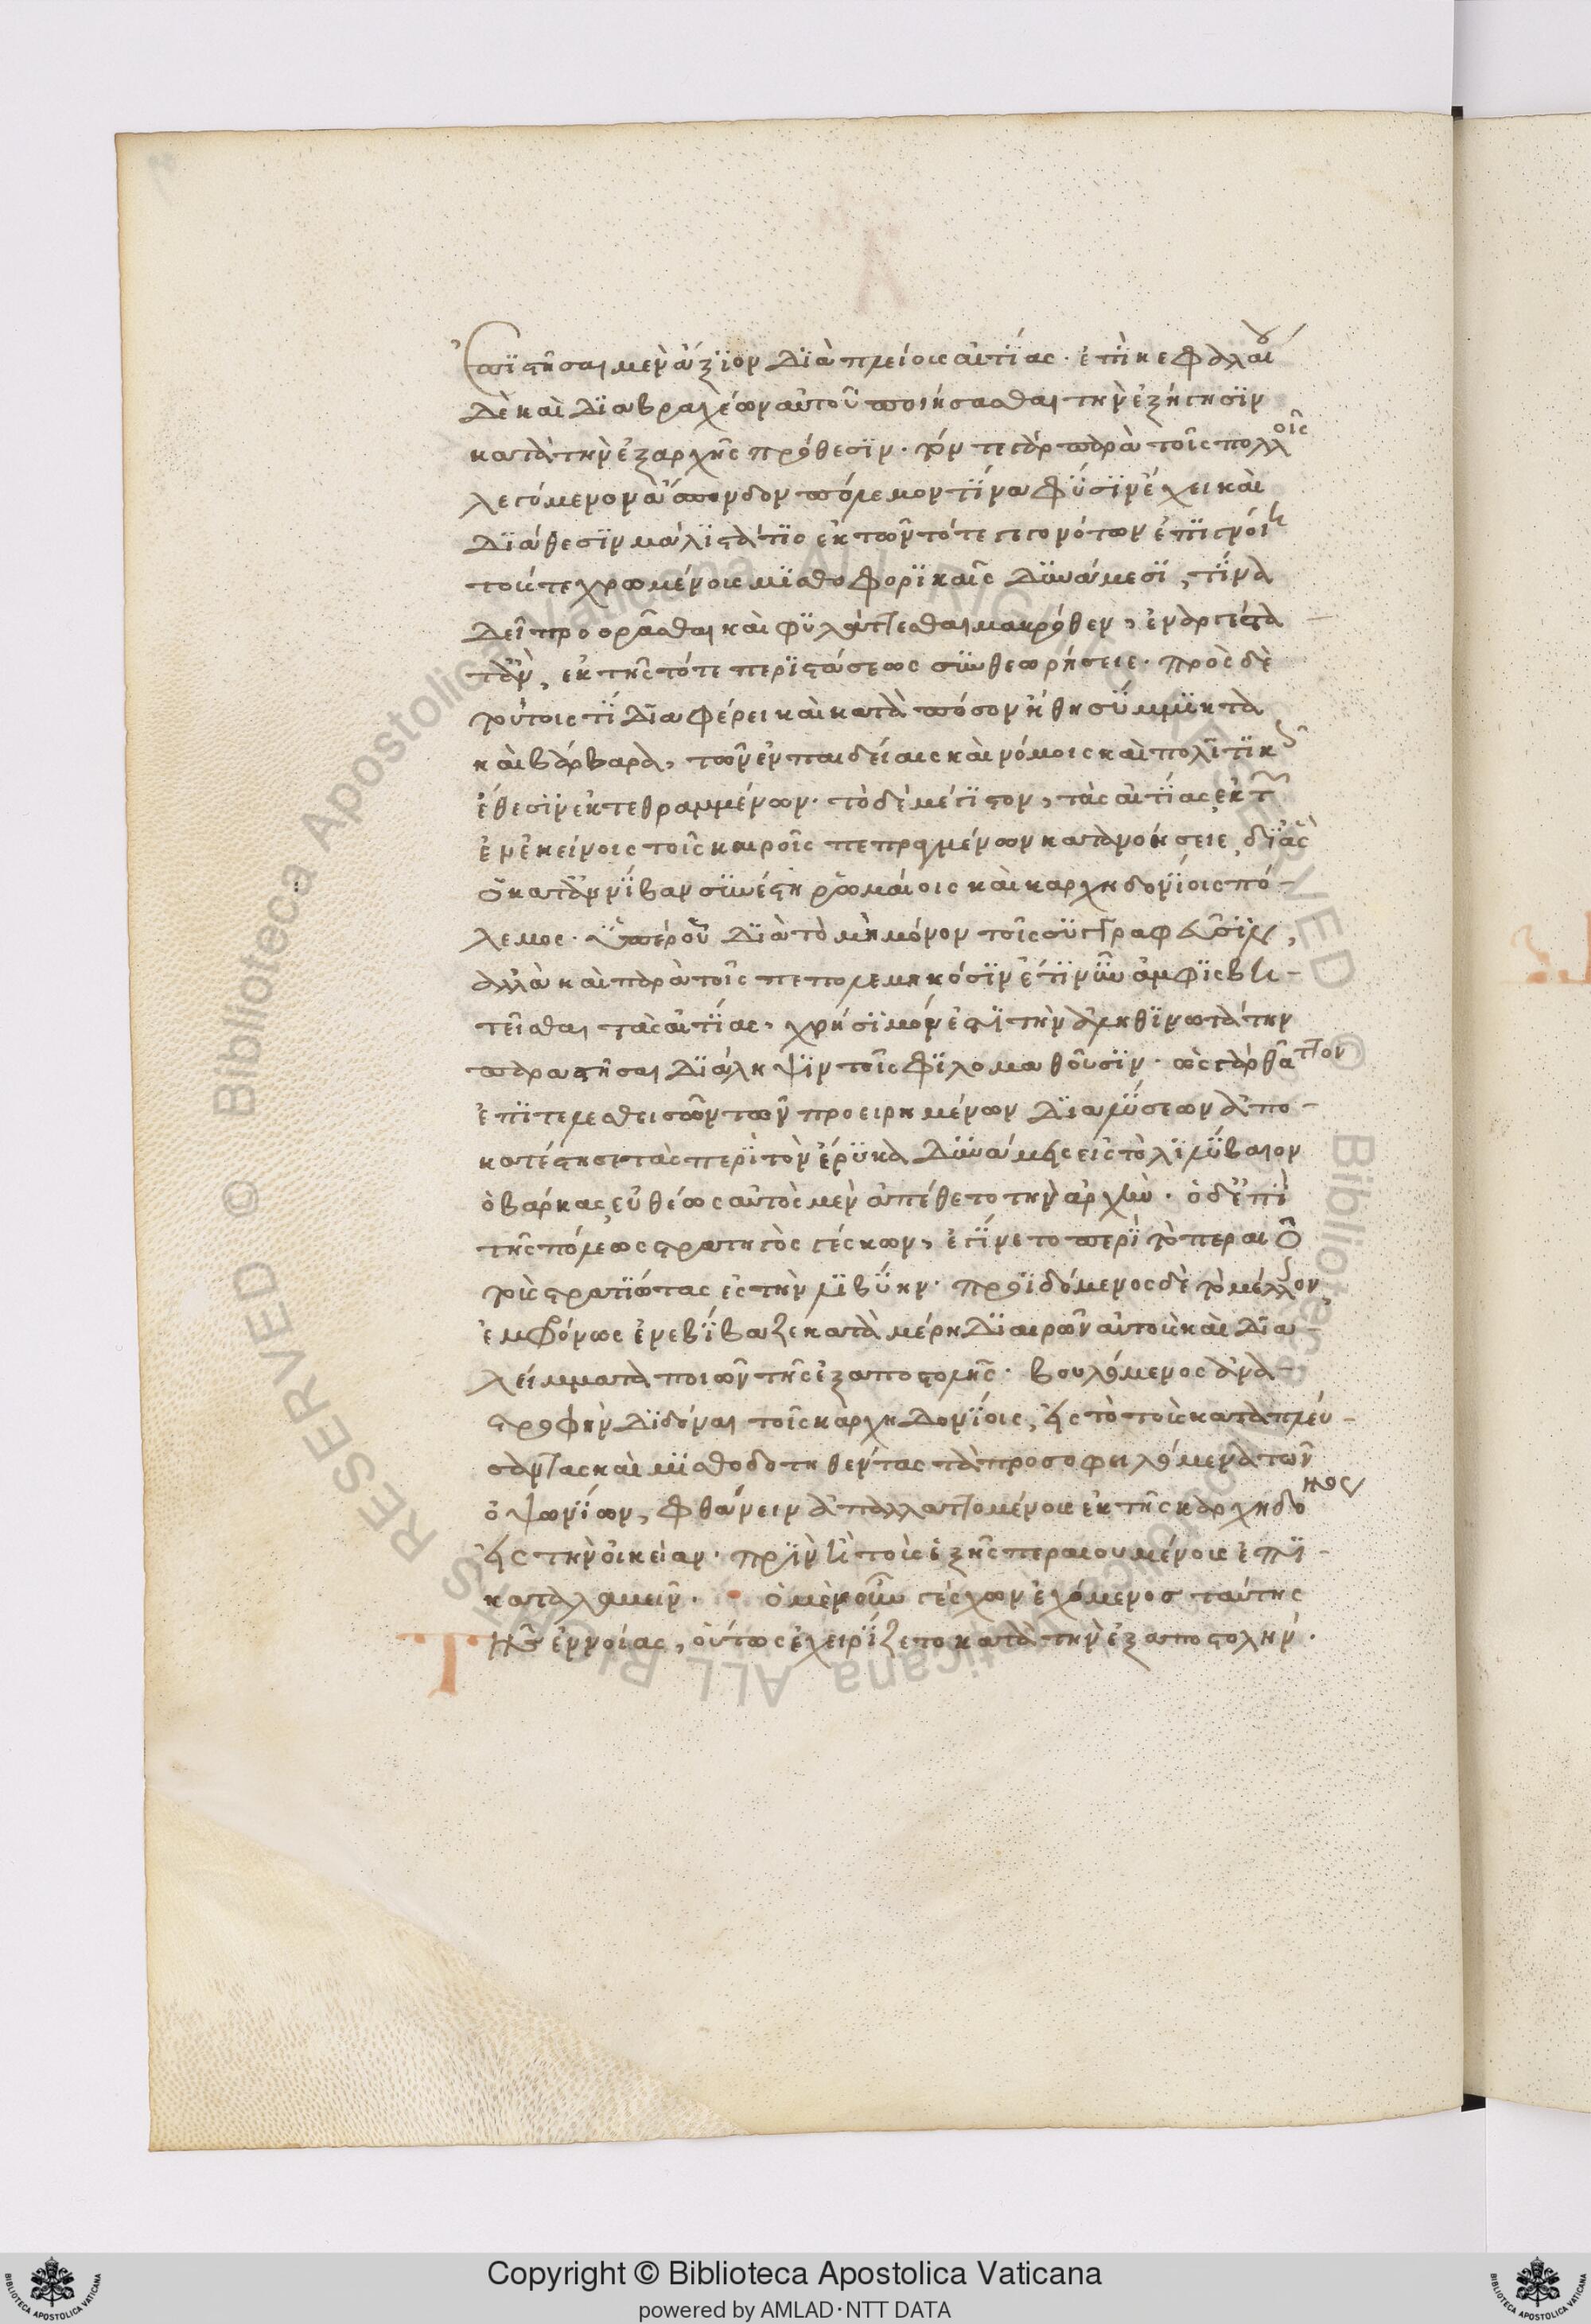 ἐπιστῆσαι μὲν ἄξιον διὰ πλείους αἰτίας· ἐπὶ κεφαλαίου
δὲ καὶ διὰ βραχέων αὐτοῦ ποιήσασθαι τὴν ἐξήγησιν
κατὰ τὴν ἐξαρχῆς πρόθεσιν· τόν τε γὰρ παρὰ τοῖς πολλοῖς
λεγόμενον ἄσπονδον πόλεμον τίνα φύσιν ἔχει καὶ
διάθεσιν μάλιστ' ἄν τις ἐκ τῶν τότε γεγονότων ἐπιγνοίη
τούς τε χρωμένους μισθοφορικαῖς δυνάμεσι, τίνα
δεῖ προορᾶσθαι καὶ φυλάττεσθαι μακρόθεν, ἐναργέστα
τ' ἂν, ἐκ τῆς τότε περιστάσεως συνθεωρήσειε· πρὸς δὲ
τούτοις τί διαφέρει καὶ κατὰ πόσον ἤθη σύμμικτα
καὶ βάρβαρα, τῶν ἐν παιδείαις καὶ νόμοις καὶ πολιτικοῖς
ἔθεσιν ἐκτεθραμμένων· τὸ δὲ μέγιστον, τὰς αἰτίας ἐκ τῶν
ἐν ἐκείνοις τοῖς καιροῖς πεπραγμένων κατανοήσειε, δι' ἃς
ὁ κατ' ἀννίβαν συνέστη ῥωμαίοις καὶ καρχηδονίοις πό-
λεμος· ὑπὲρ οὗ διὰ τὸ μὴ μόνον τοῖς συγγραφεῦσιν,
ἀλλὰ καὶ παρὰ τοῖς πεπολεμηκόσιν ἔτι νῦν ἀμφισβη-
τεῖσθαι τὰς αἰτίας, χρήσιμόν ἐστι τὴν ἀληθινωτάτην
παραστῆσαι διάληψιν τοῖς φιλομαθοῦσιν· ὡς γὰρ θᾶττον
ἐπιτελεσθεισῶν τῶν προειρημένων διαλύσεων ἀπο-
κατέστησε τὰς περὶ τὸν ἔρυκα δυνάμεις εἰς τὸ λιλύβαιον
ὁ βάρκας, εὐθέως αὐτὸς μὲν ἀπέθετο τὴν ἀρχήν· ὁ δ' ἐπὶ
τῆς πόλεως στρατηγὸς γέσκων, ἐγίνετο περὶ τὸ περαιοῦν
τοὺς στρατιώτας ἐς τὴν λιβύην· προϊδόμενος δὲ τὸ μέλλον,
ἐμφρόνως ἐνεβίβαζε κατὰ μέρη διαιρῶν αὐτοὺς καὶ δια-
λείμματα ποιῶν τῆς ἐξαποστολῆς· βουλόμενος ἀνα-
στροφὴν διδόναι τοῖς καρχηδονίοις, εἰς τὸ τοὺς καταπλεύ-
σαντας καὶ μισθοδοτηθέντας τὰ προσοφειλόμενα τῶν
ὀψωνίων, φθάνειν ἀπαλλαττομένους ἐκ τῆς καρχηδόνος
εἰς τὴν οἰκείαν· πρὶν ἢ τοὺς ἑξῆς περαιουμένους ἐπι-
καταλαβεῖν· ὁ μὲν οὖν γέσχων ἐχόμενος ταύτης
τῆς ἐννοίας, οὕτως ἐχειρίζετο κατὰ τὴν ἐξαποστολήν·
Copyright © Biblioteca Apostolica Vaticana
powered by AMLAD·NTT DATA